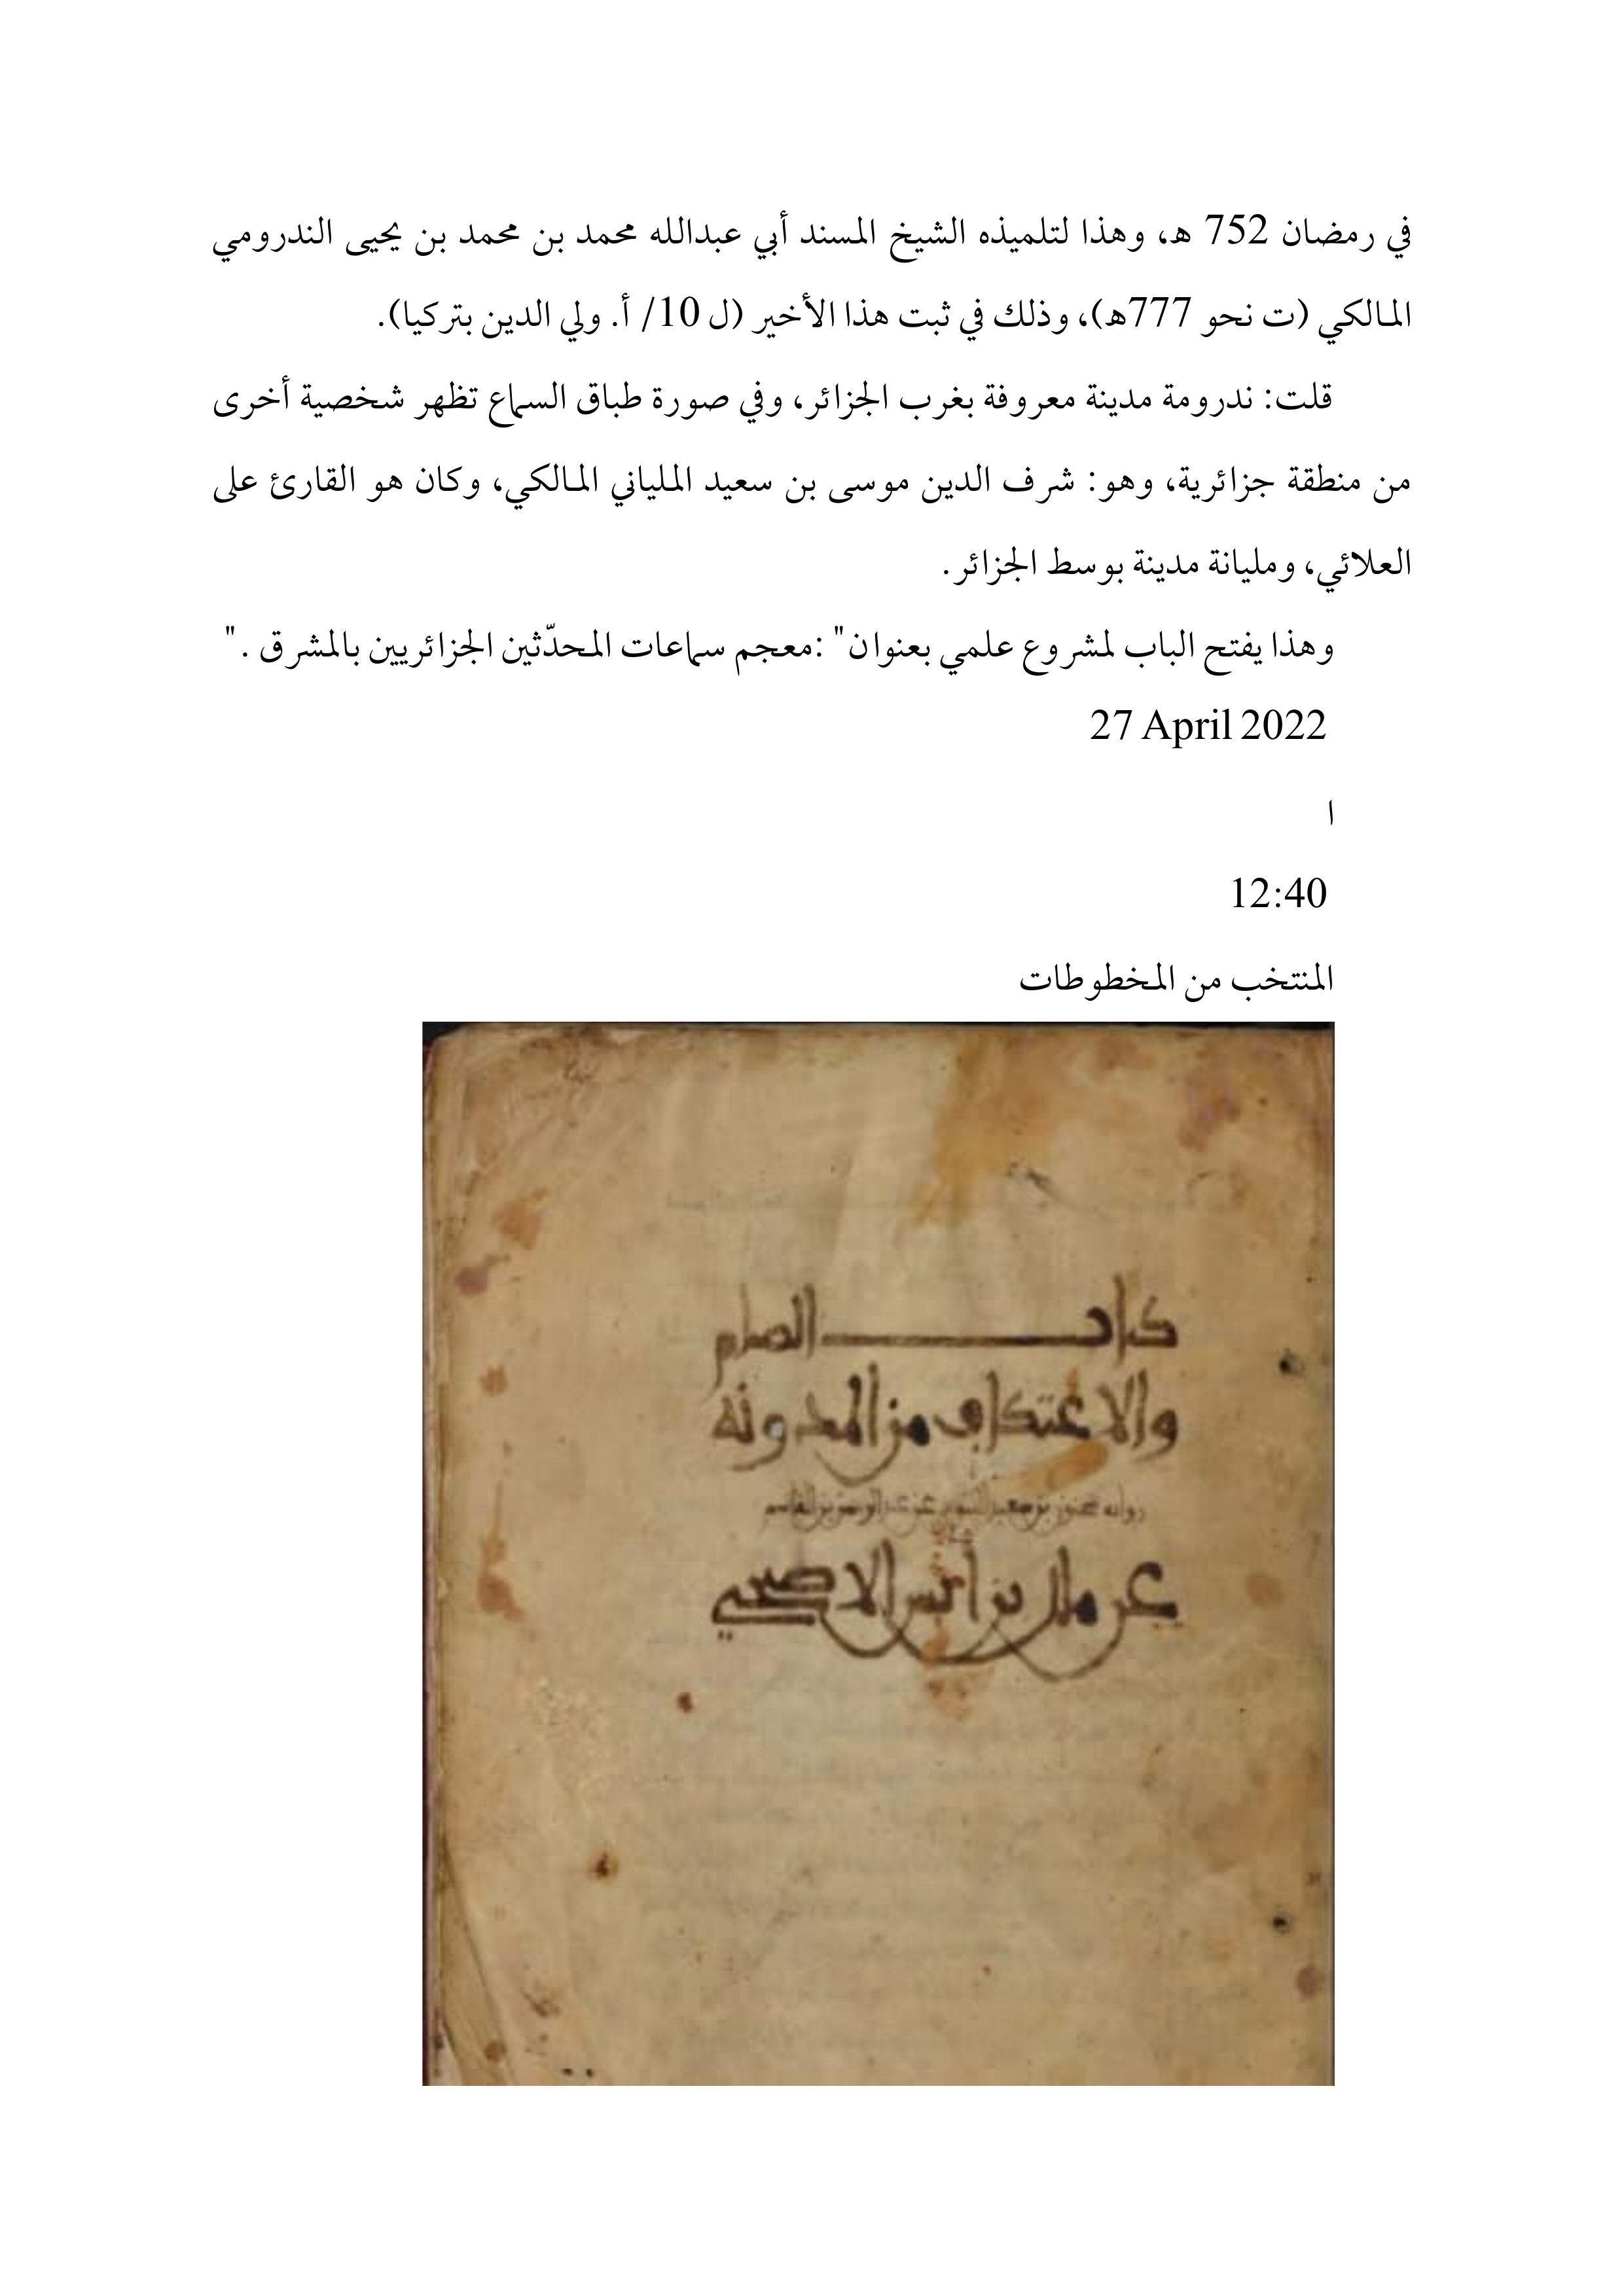 في رمضان 752 هـ، وهذا لتلميذه الشيخ المسند أبي عبدالله محمد بن محمد بن يحيى الندرومي
المالكي (ت نحو 777هـ)، وذلك في ثبت هذا الأخير (ل 10/ أ. ولي الدين بتركيا).
قلت: ندرومة مدينة معروفة بغرب الجزائر، وفي صورة طباق السماع تظهر شخصية أخرى
من منطقة جزائرية، وهو: شرف الدين موسى بن سعيد الملياني المالكي، وكان هو القارئ على
العلائي، ومليانة مدينة بوسط الجزائر.
وهذا يفتح الباب لمشروع علمي بعنوان" :معجم سماعات المحدّثين الجزائريين بالمشرق ."
27 April 2022
ا
12:40
المنتخب من المخطوطات
كتاب الصيام
والاعتكاف من المدونة
رواية سحنون بن سعيد التنوخي عن عبد الرحمن بن القاسم
عن مالك بن أنس الاصبحي